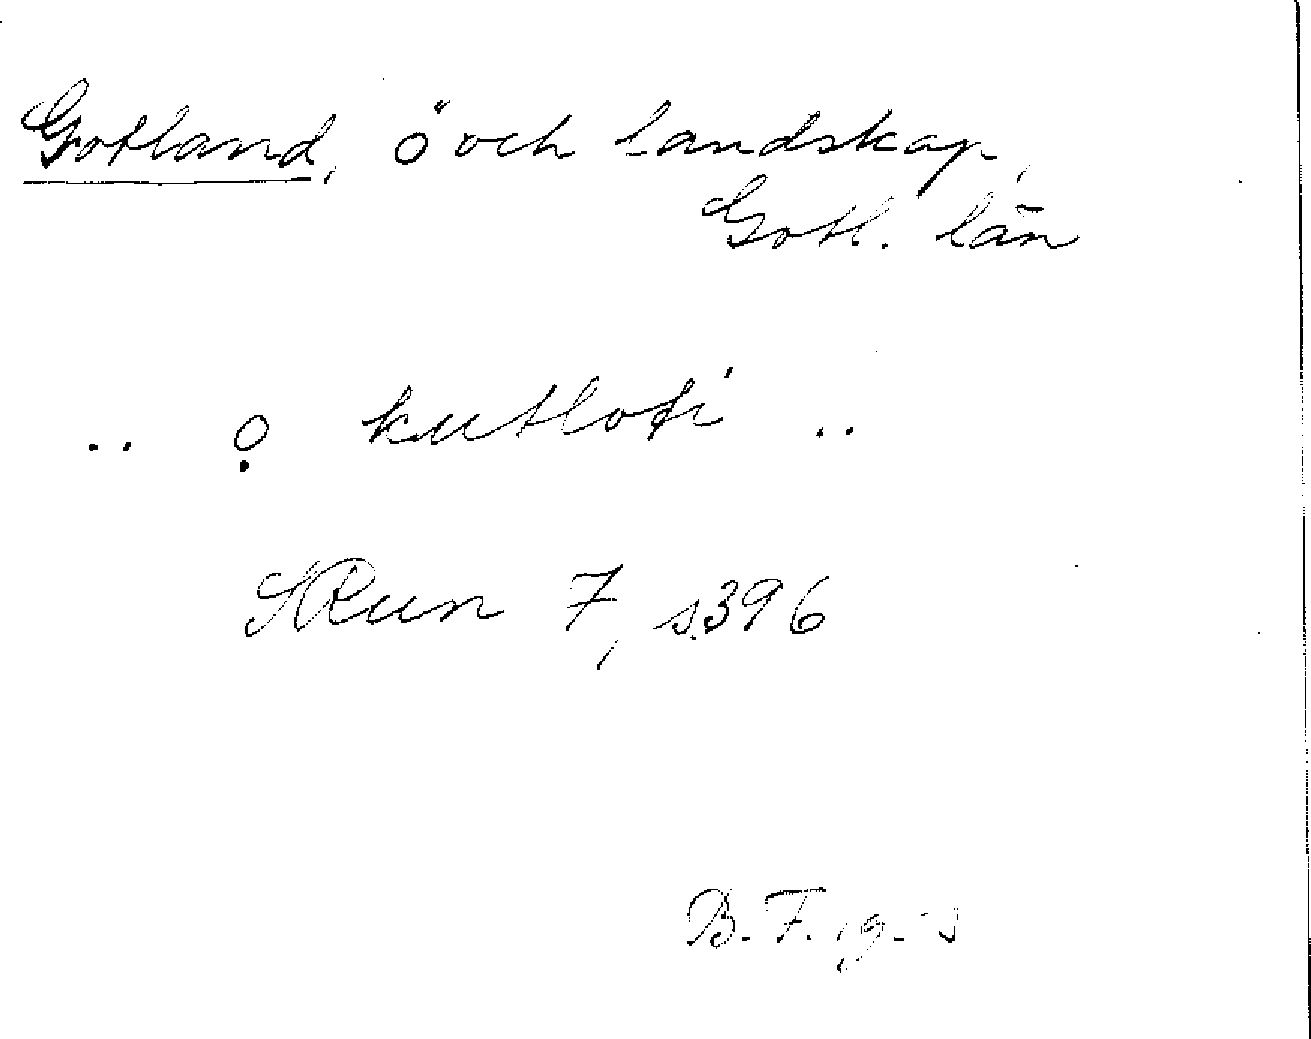 Gotland, ö och landskap,
Gotl. län
.. ọ kutloti ..
SRun 7, s.396
B.F.